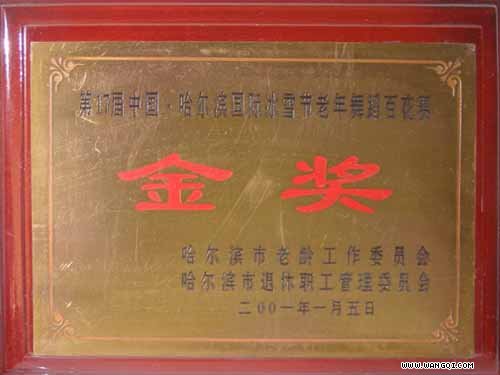 第17届中国·哈尔滨国际冰雪节老年舞蹈百花赛
金奖
哈尔滨市老龄工作委员会
哈尔滨市退休职工管理委员会
二00一年一月五日
www.wangqi.com